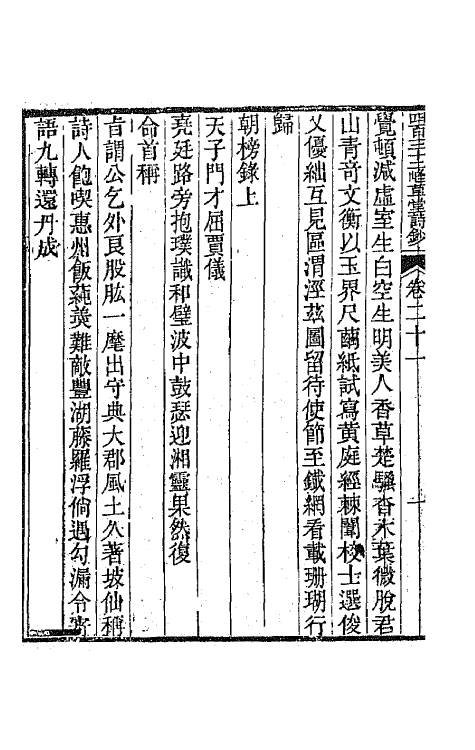 堂詩鈔 卷二十一
覺頓減虛室生白空生明美人香草楚騷杳木葉微脫君
山青奇文衡以玉界尺繭紙試寫黃庭經棘闈校士選俊
乂優絀互見區渭涇茲圖留待使節至鐵網看載珊瑚行
歸
朝榜錄上
天子門才屈賈儀
堯廷路旁抱璞識和璧波中鼓瑟迎湘靈果然復
命首稱
旨謂公乞外良股肱一麾出守典大郡風土久著坡仙稱
詩人飽喫惠州飯蒓羮難敵豐湖藤羅浮倘遇勾漏令寄
語九轉還丹成